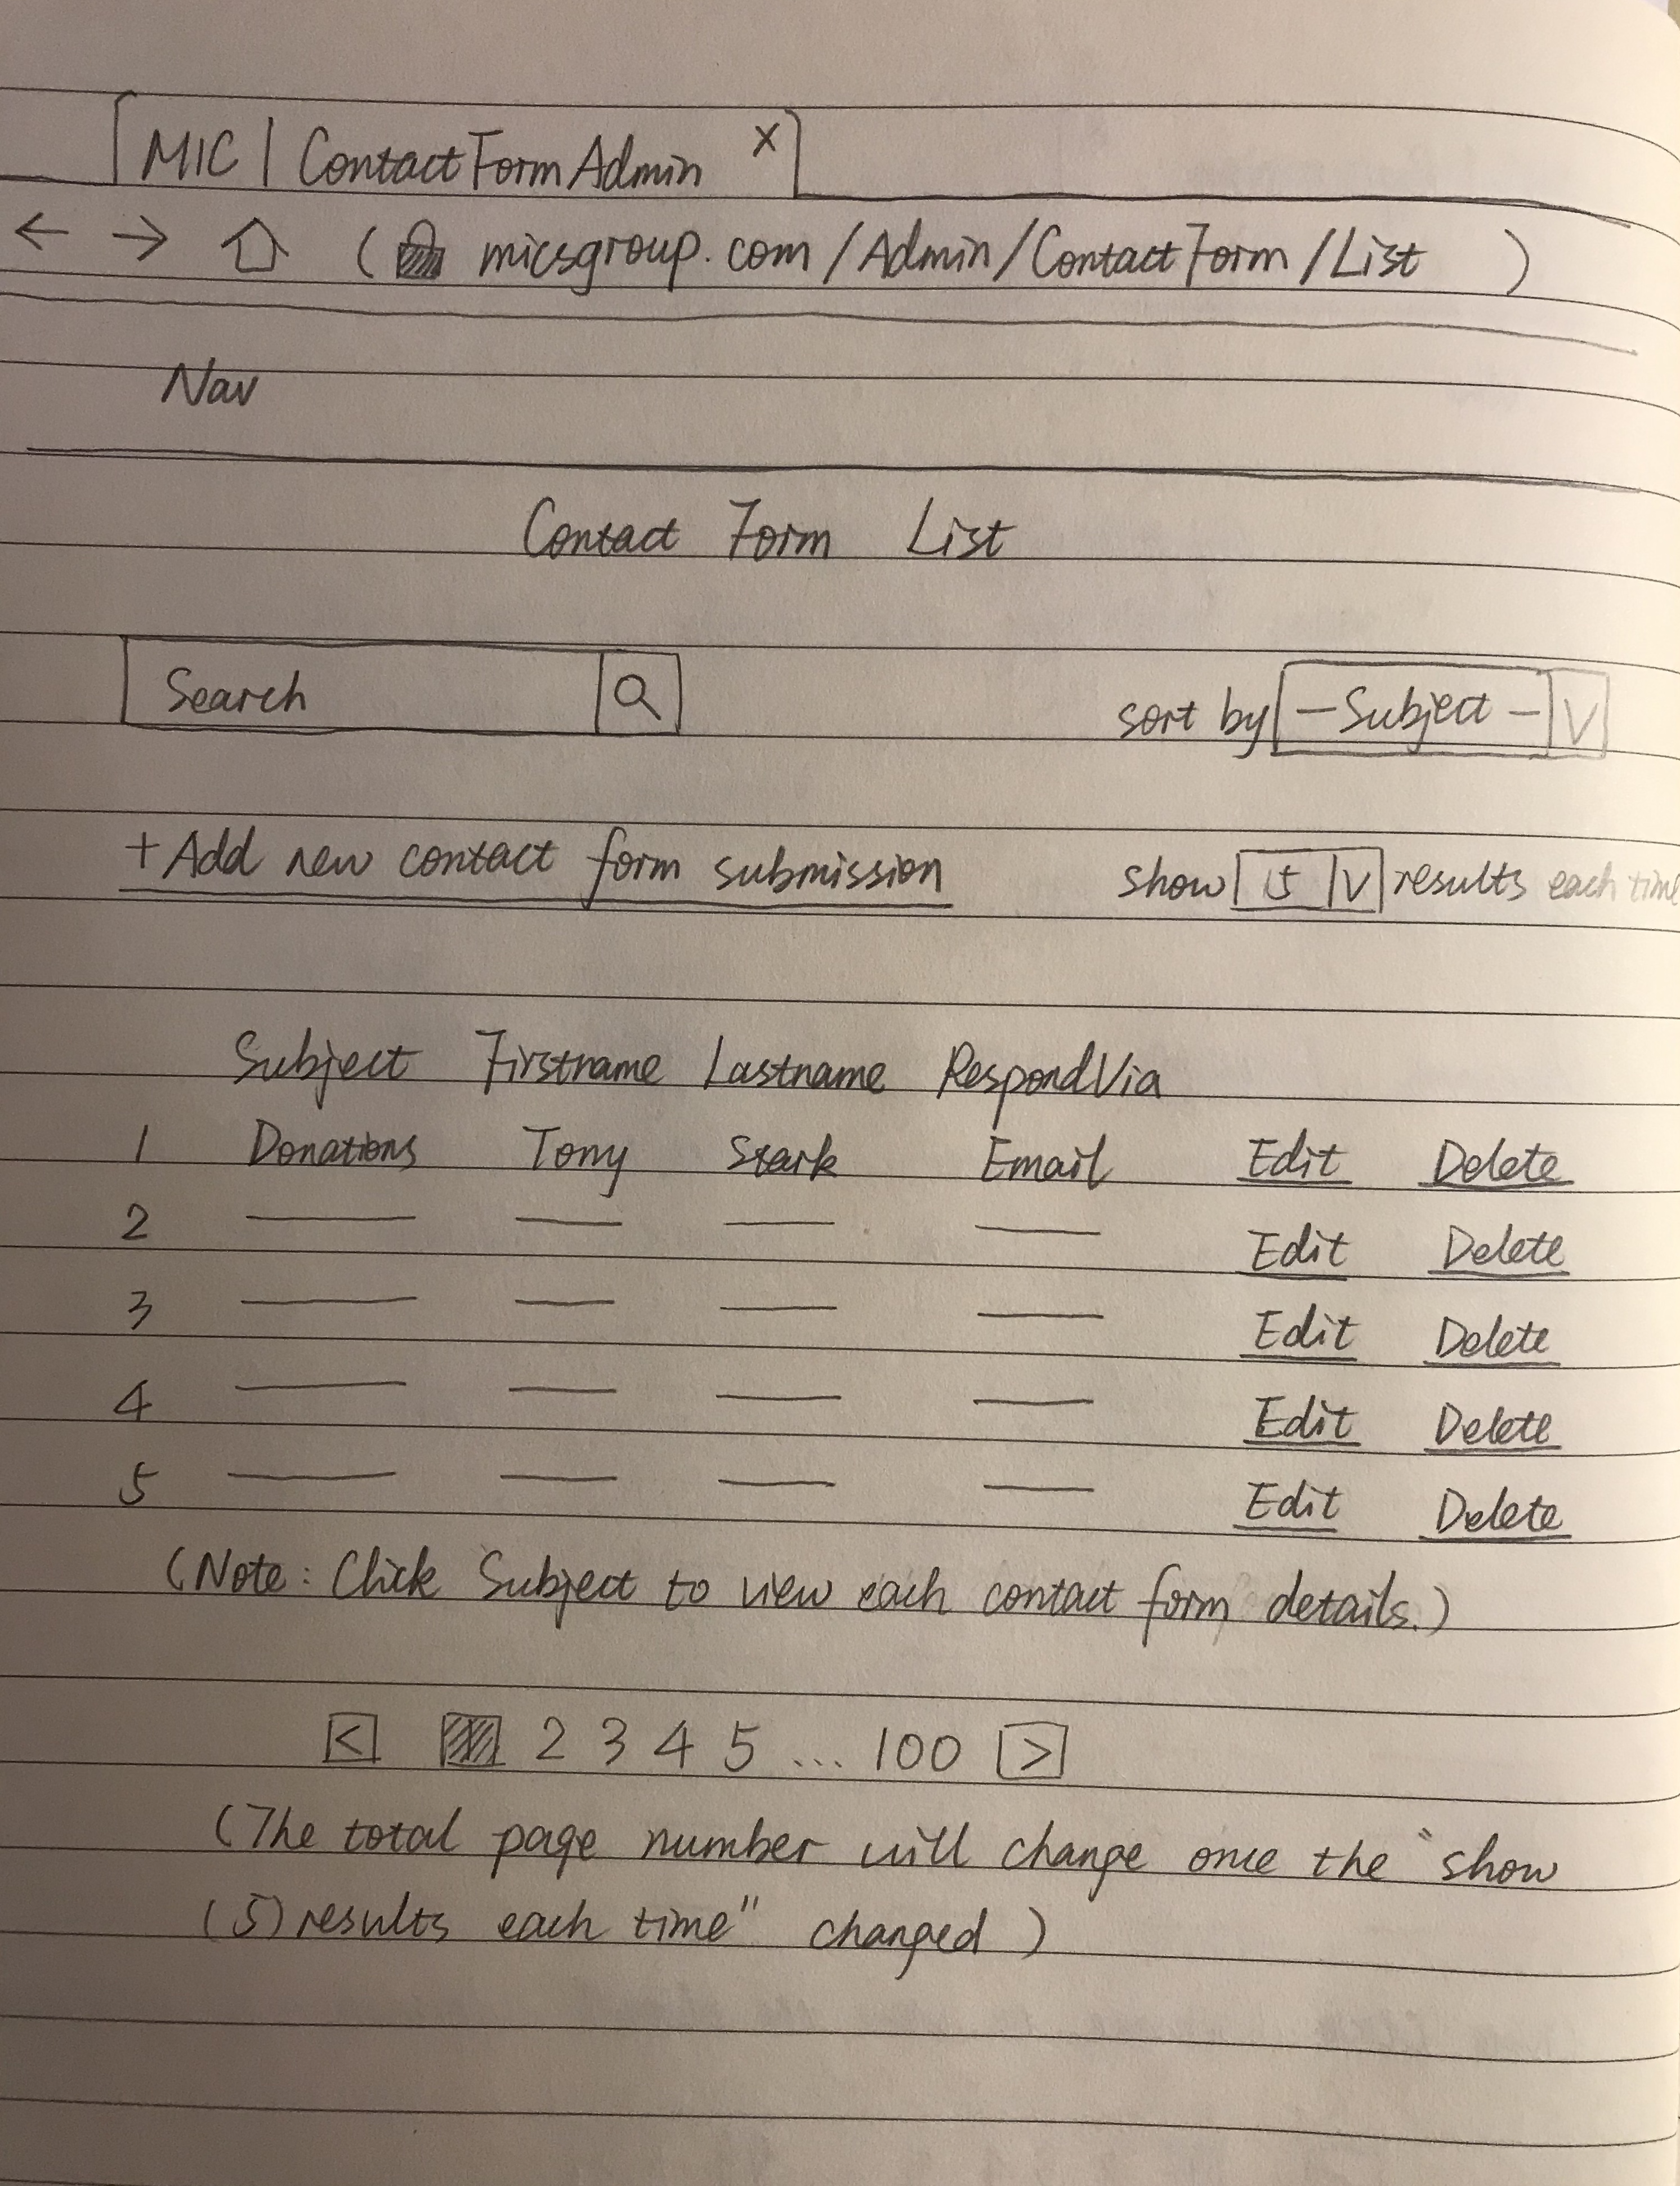 MIC | ContactFormAdmin X
← → micsgroup.com/Admin/ContactForm/List
Nav
Contact Form List
Search
sort by -Subject- V
+Add new contact form submission
show 5 V results each time
Subject Firstname Lastname RespondVia
1 Donations Tony Stark Email Edit Delete
2 Edit Delete
3 Edit Delete
4 Edit Delete
5 Edit Delete
(Note: Click Subject to view each contact form details.)
< 1 2 3 4 5 ... 100 >
(The total page number will change once the "show
(5) results each time" changed)